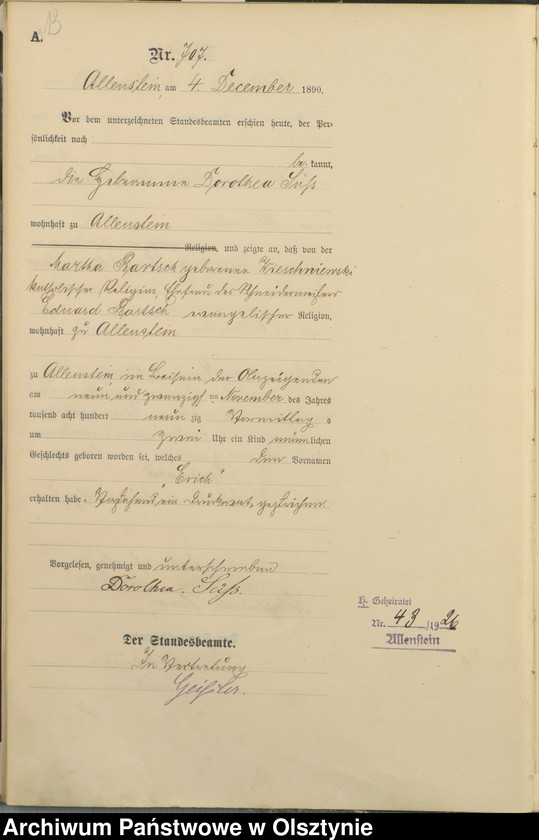 13
A.
Nr. 707.
Allenstein, am 4. December 1890.
Vor dem unterzeichneten Standesbeamten erschien heute, der Per-
sönlichkeit nach
be kannt,
die Hebeamme Dorothea Süß
wohnhaft zu Allenstein
Religion, und zeigte an, daß von der
Martha Bartsch geborenen Wieschniewski
katholischer Religion, Ehefrau des Schneidermeisters
Eduard Bartsch evangelischer Religion,
wohnhaft zu Allenstein
zu Allenstein, im Beisein der Anzeigenden
am neun und zwanzigsten November des Jahres
tausend acht hundert neun zig Vormittag s
um zwei Uhr ein Kind männlichen
Geschlechts geboren worden sei, welches den Vornamen
"Erich"
erhalten habe. Vorstehend ein Druckwort gestrichen.
Vorgelesen, genehmigt und unterschrieben
Dorothea Süß.
Der Standesbeamte.
In Vertretung
H. Geheiratet
Nr. 43/1926
Allenstein
Archiwum Państwowe w Olsztynie